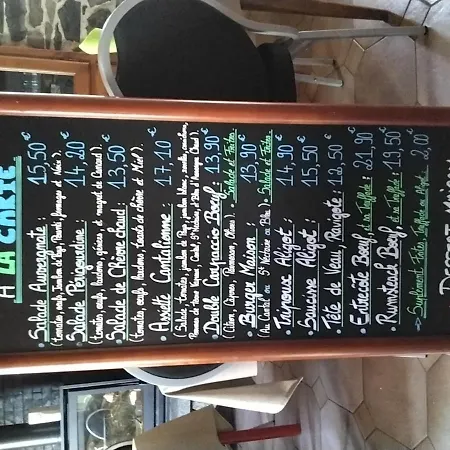 A LA CARTE
• Salade Auvergnate : 15,50 €
(tomates, oeufs, Jambon de Pays, fromages et Noix).
• Salade Périgourdine : 14,20 €
(tomates, oeufs, lardons, gésiers, magret de Canard).
• Salade de Chèvre chaud : 13,50 €
(tomates, oeufs, lardons, toasts de chèvre et Miel).
• Assiette Cantalienne : 17,10 €
(Salade, tomates, jambon de Pays, jambon blanc,
• Double Carpaccio Boeuf : 13,90 €
(Citron, Câpres, Parmesan, Oignon). Salade et Frites.
• Burger Maison : 13,90 €
(Au Cantal ou St Nectaire ou Bleu) Salade et Frites.
• Tripoux Aligot : 14,90 €
• Saucisse Aligot : 15,50 €
• Tête de Veau, Ravigote : 12,50 €
• Entrecôte Boeuf et sa Truffade : 21,90 €
• Rumsteack Boeuf et sa Truffade : 19,50 €
=> Supplément Frites Truffade ou Aligot : 2,00 €